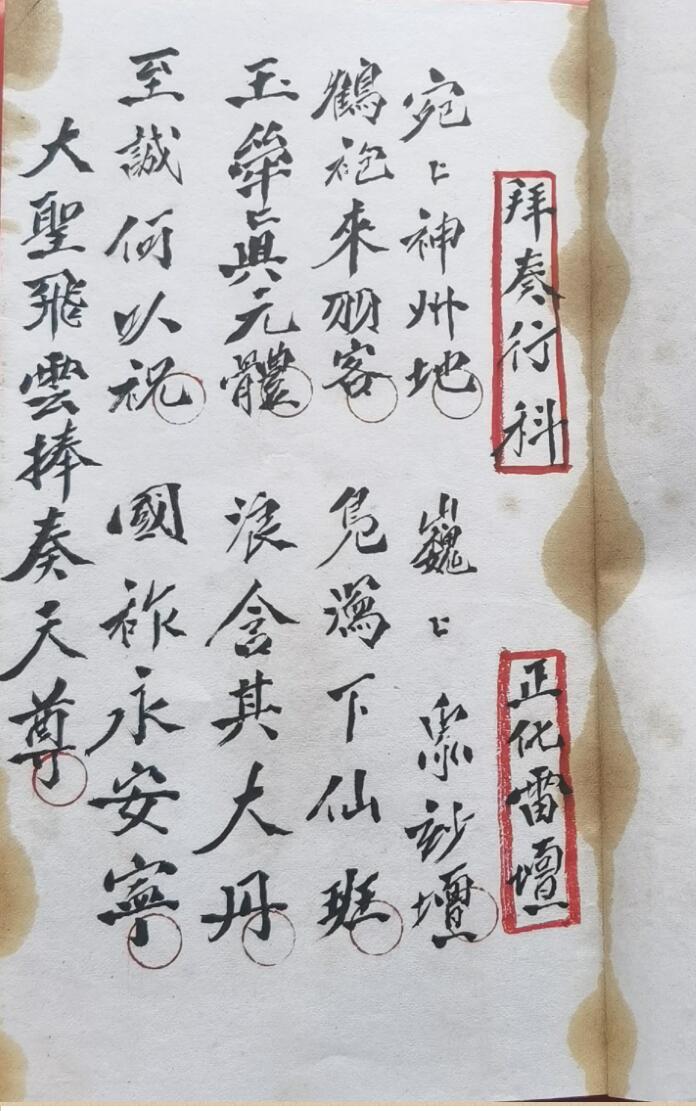 拜奏行科　正化雷壇
宛〻神州地　巍〻眾妙壇
鶴袍來羽客　鳧潟下仙班
玉犖〻真元體　浪含其大丹
至誠何以祝　國祚永安寧
大聖飛雲捧奏天尊